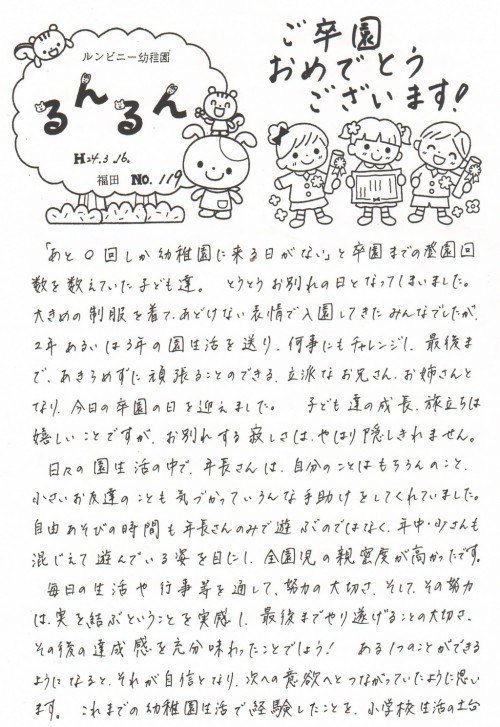 ルンビニー幼稚園
るんるん
H24.3.16.
福田 No.119
ご卒園
おめでとう
ございます!
「あと○回しか幼稚園に来る日がない」と卒園までの登園回
数を数えていた子ども達。 とうとうお別れの日となってしまいました。
大きめの制服を着て、あどけない表情で入園してきたみんなでしたが、
2年あるいは3年の園生活を送り、何事にもチャレンジし、最後ま
で、あきらめずに頑張ることのできる、立派なお兄さん、お姉さんと
なり、今日の卒園の日を迎えました。 子ども達の成長、旅立ちは
嬉しいことですが、お別れする寂しさは、やはり隠しきれません。
日々の園生活の中で、年長さんは、自分のことはもちろんのこと、
小さいお友達のことも気づかっていろんな手助けをしてくれていました。
自由あそびの時間も年長さんのみで遊ぶのではなく、年中・少さんも
混じえて遊んでいる姿を目にし、全園児の親密度が高かったです。
毎日の生活や行事等を通して、努力の大切さ、そして、その努力
は、実を結ぶということを実感し、最後までやり遂げることの大切さ、
その後の達成感を充分味わったことでしょう! ある1つのことができる
ようになると、それが自信となり、次への意欲へとつながっていたように思い
ます。 これまでの幼稚園生活で経験したことを、小学校生活の土台